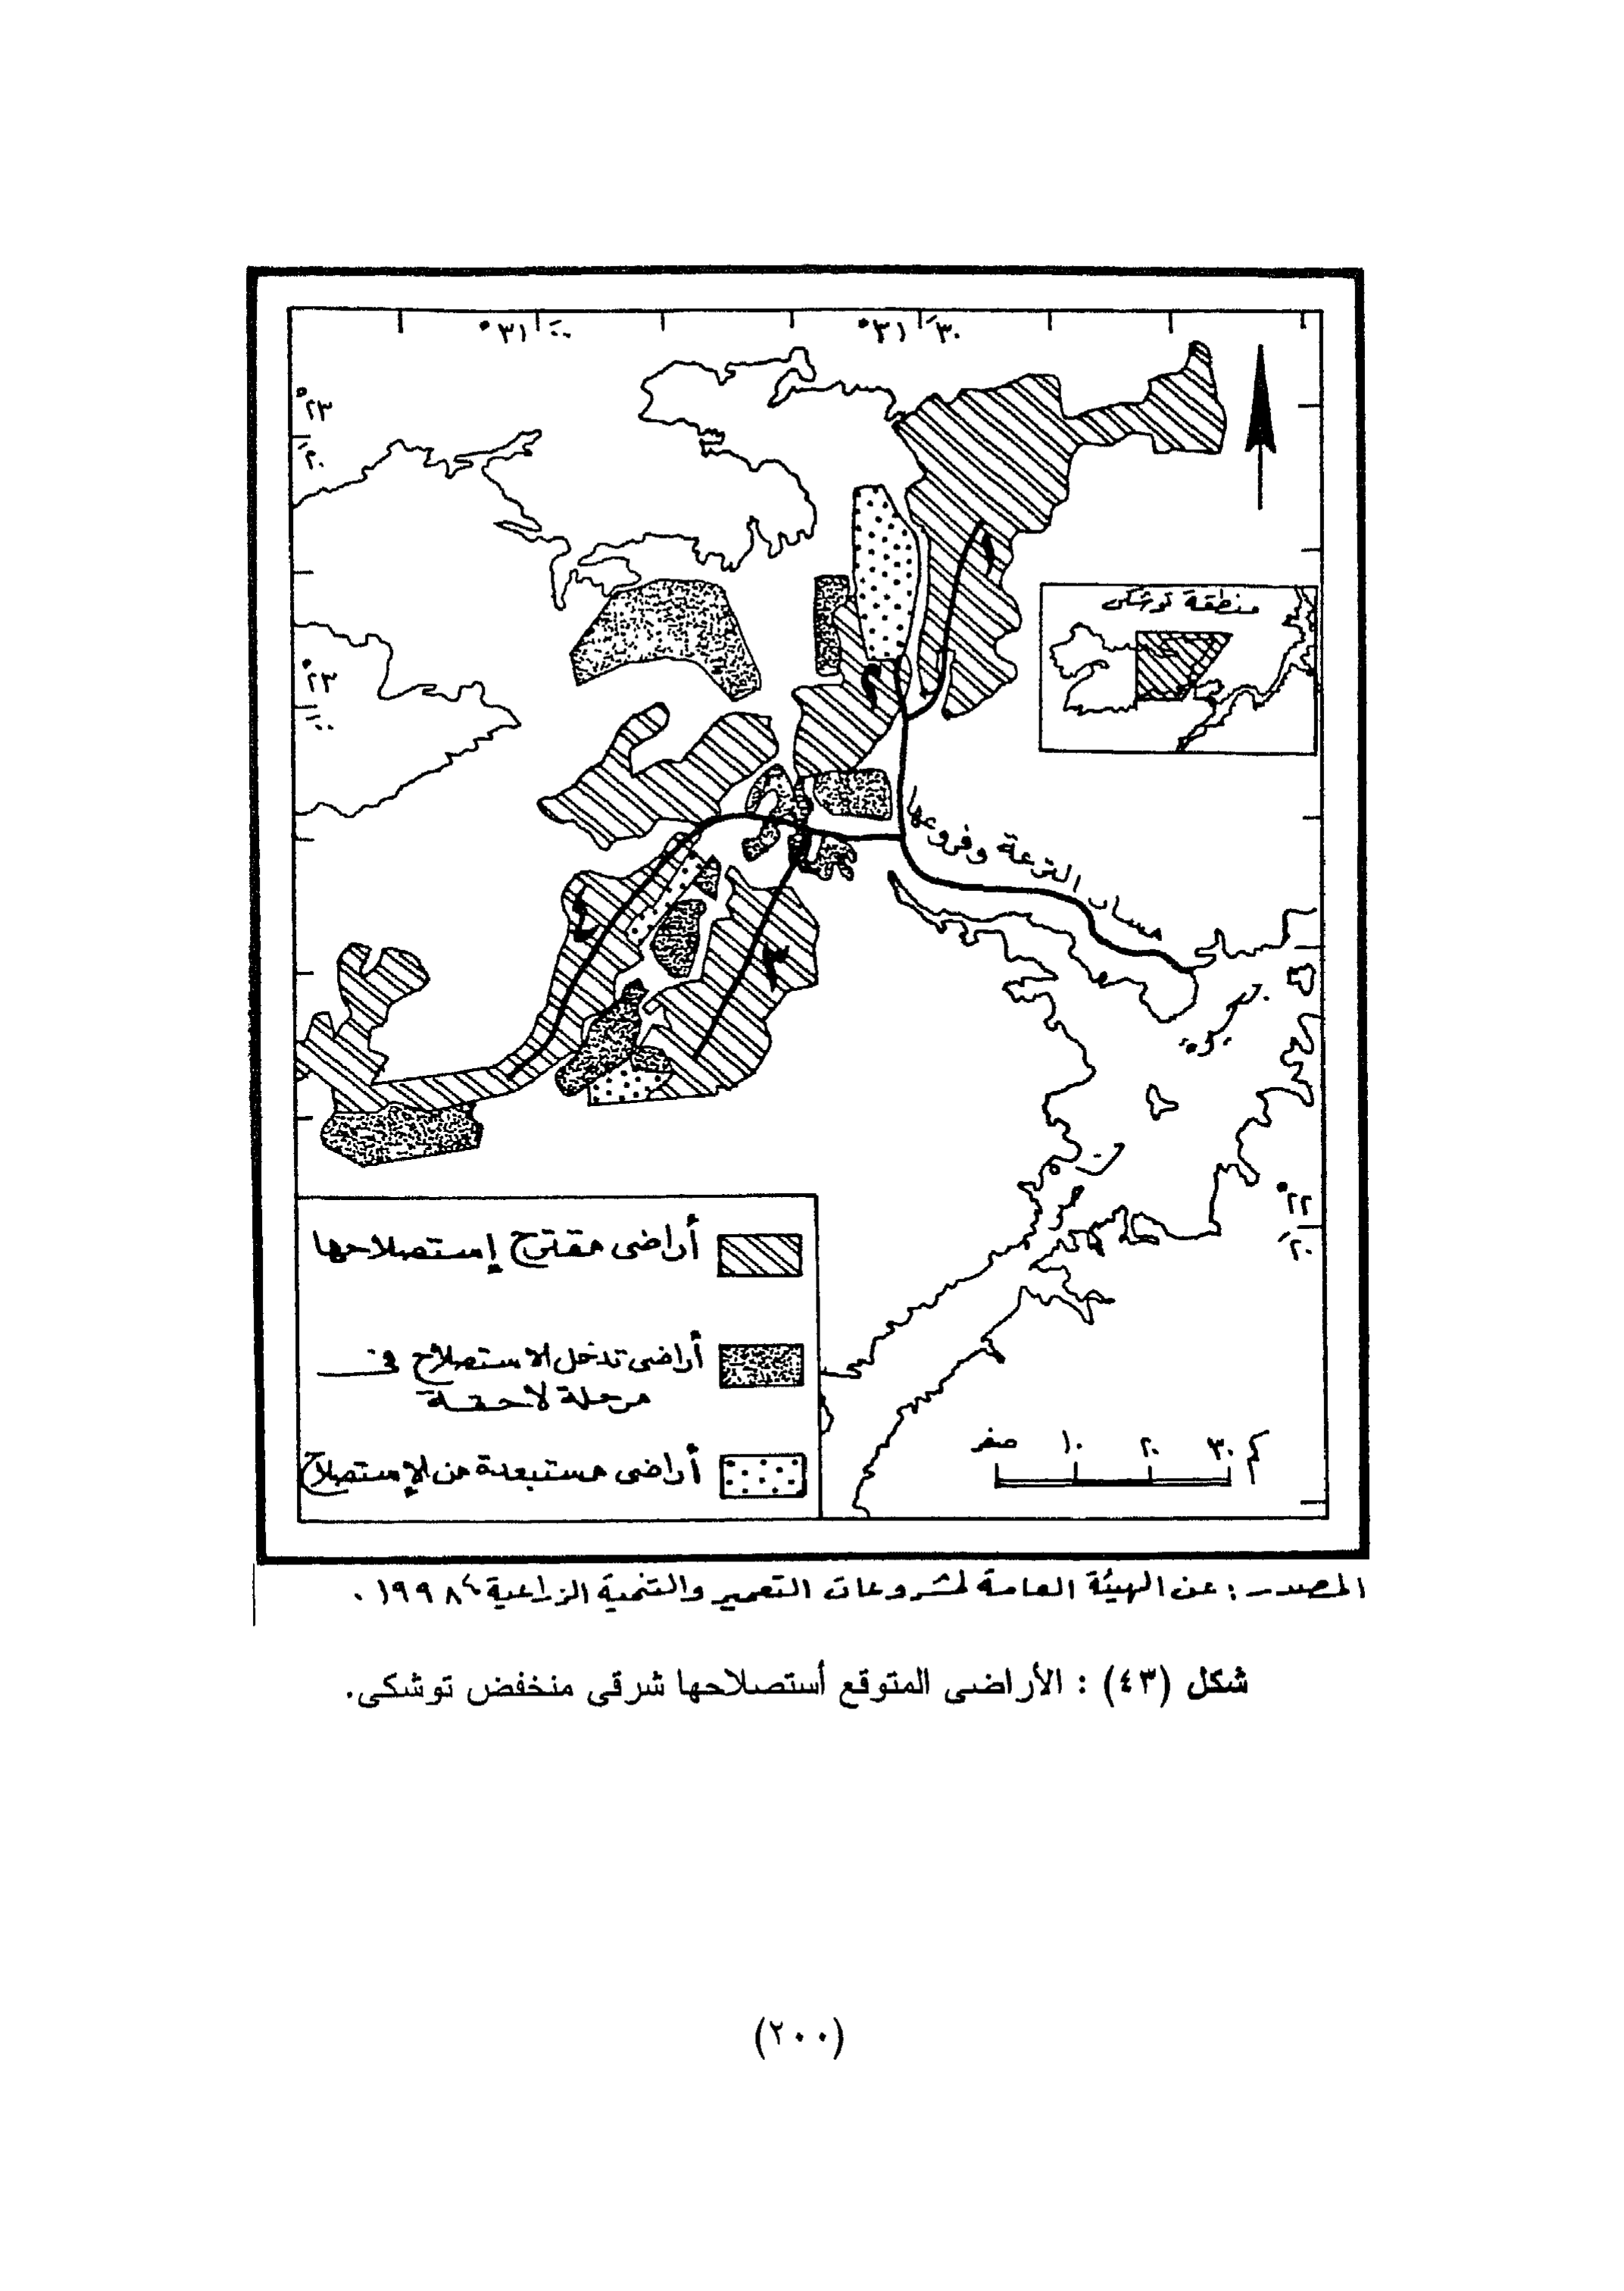 °٣١ ٠٠َ
°٣١ ٣٠َ
°٢٣
٢٠َ
منطقة توشكى
°٢٣
٠٠َ
مسار الترعة وفروعها
١
٢
٣
٤
°٢٢
٢٠َ
أراضى مقترح إستصلاحها
أراضى تدخل الاستصلاح فى
مرحلة لاحقة
أراضى مستبعدة من الإستصلاح
صفر ١٠ ٢٠ ٣٠ كم
المصدر : عن الهيئة العامة لمشروعات التعمير والتنمية الزراعية ، ١٩٩٨ .
شكل (٤٣) : الأراضى المتوقع أستصلاحها شرقى منخفض توشكى.
(٢٠٠)